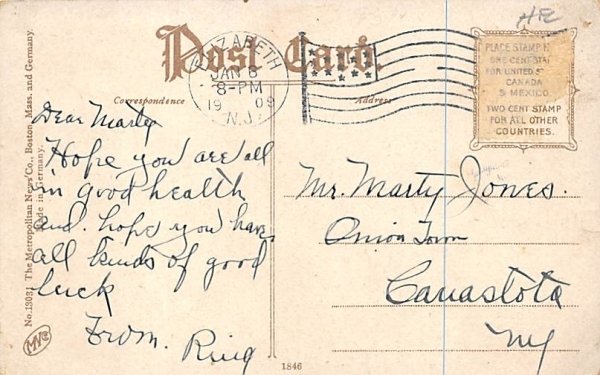 HE
Post Card.
ELIZABETH
JAN 6
8-PM
1909
N.J.
PLACE STAMP H
ONE CENT STA
FOR UNITED ST
CANADA
& MEXICO
TWO CENT STAMP
FOR ALL OTHER
COUNTRIES.
Correspondence
Address
Dear Marty
Hope you are all
in good health
and hope you have
all kinds of good
luck
From. Ring
Mr. Marty Jones.
Onion Town
Canastota
NY
No. 13031 The Metropolitan News Co., Boston, Mass. and Germany.
Made in Germany.
MNCo
1846